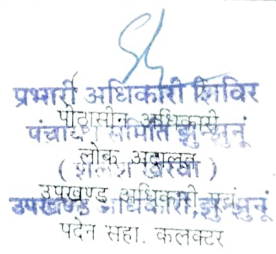 प्रभारी अधिकारी शिविर
पीठासीन अधिकारी
पंचायत समिति झुन्झुनूं
लोक अदालत
उपखण्ड अधिकारी एवं
उपखण्ड अधिकारी, झुन्झुनूं
पदेन सहा. कलक्टर